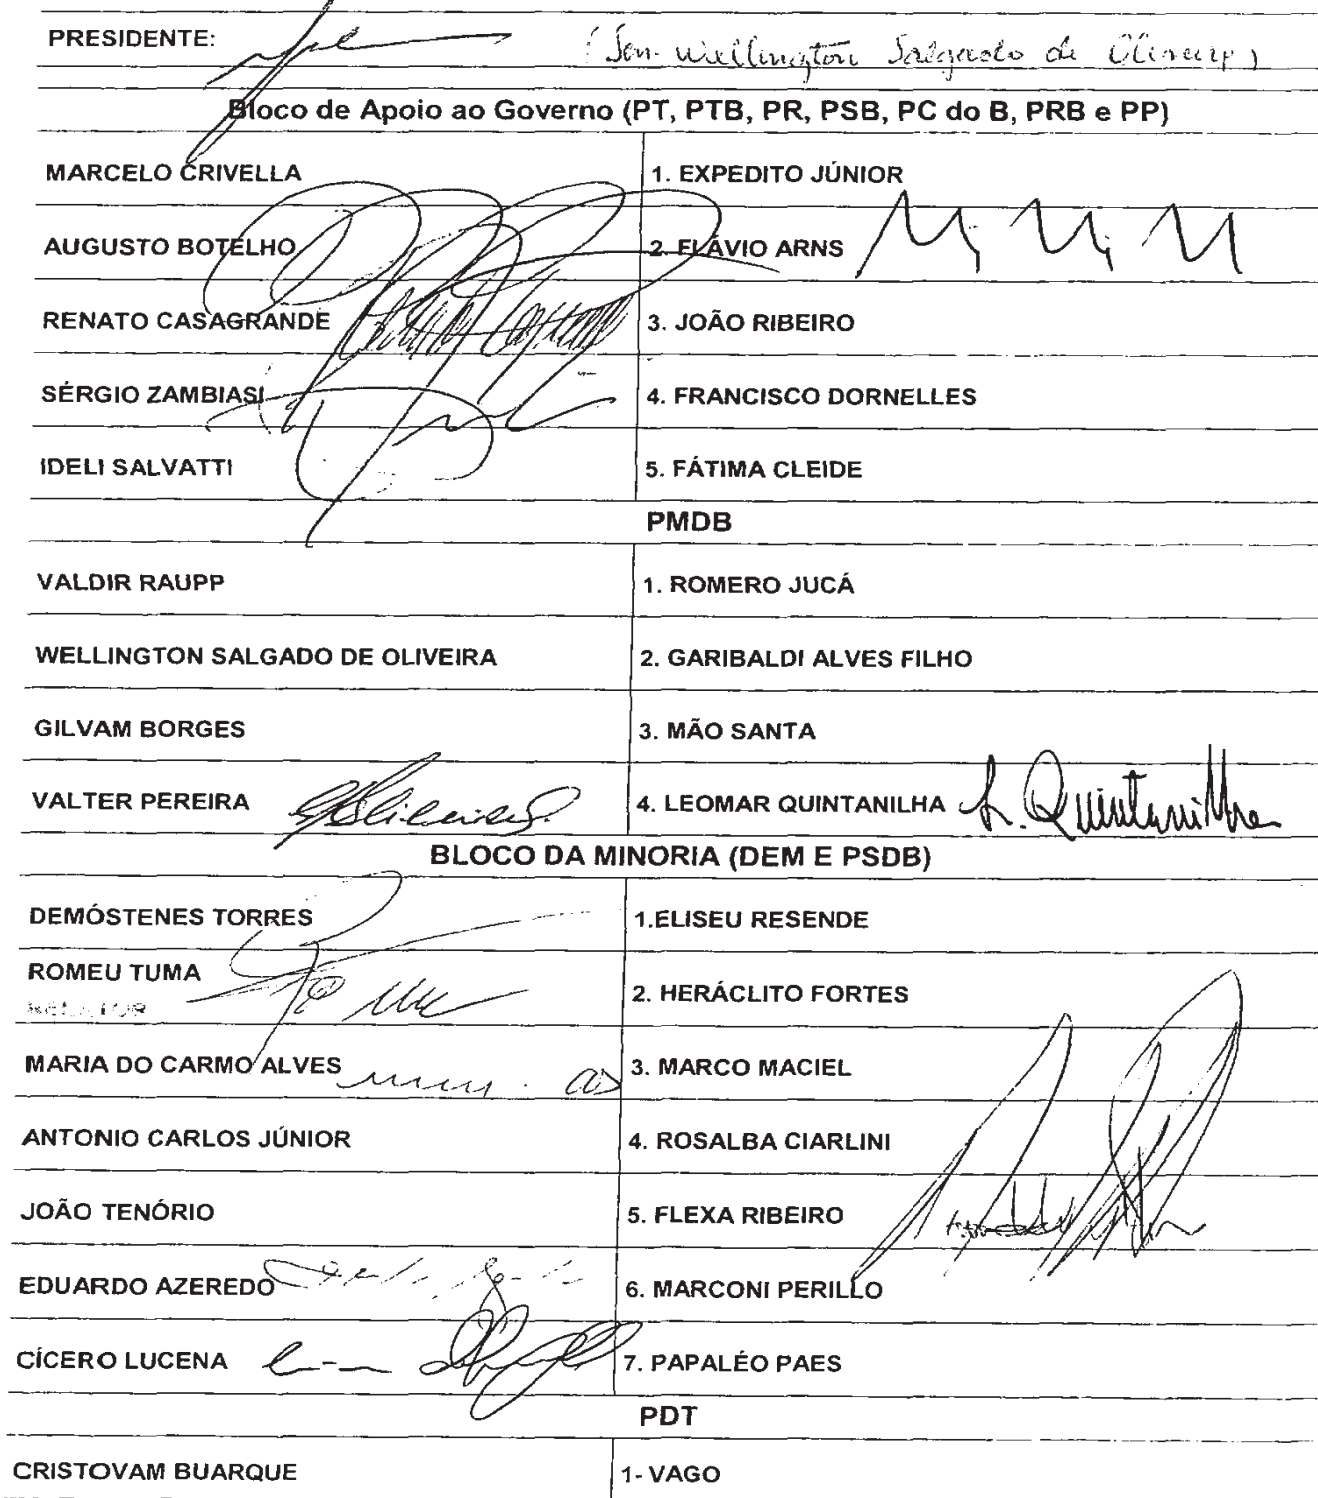 PRESIDENTE: (Sen. Wellington Salgado de Oliveira)
Bloco de Apoio ao Governo (PT, PTB, PR, PSB, PC do B, PRB e PP)
MARCELO CRIVELLA 1. EXPEDITO JÚNIOR
AUGUSTO BOTELHO 2. FLÁVIO ARNS
RENATO CASAGRANDE 3. JOÃO RIBEIRO
SÉRGIO ZAMBIASI 4. FRANCISCO DORNELLES
IDELI SALVATTI 5. FÁTIMA CLEIDE
PMDB
VALDIR RAUPP 1. ROMERO JUCÁ
WELLINGTON SALGADO DE OLIVEIRA 2. GARIBALDI ALVES FILHO
GILVAM BORGES 3. MÃO SANTA
VALTER PEREIRA 4. LEOMAR QUINTANILHA L. Quintanilha
BLOCO DA MINORIA (DEM E PSDB)
DEMÓSTENES TORRES 1.ELISEU RESENDE
ROMEU TUMA 2. HERÁCLITO FORTES
RELATOR
MARIA DO CARMO ALVES 3. MARCO MACIEL
ANTONIO CARLOS JÚNIOR 4. ROSALBA CIARLINI
JOÃO TENÓRIO 5. FLEXA RIBEIRO
EDUARDO AZEREDO 6. MARCONI PERILLO
CÍCERO LUCENA 7. PAPALÉO PAES
PDT
CRISTOVAM BUARQUE 1- VAGO